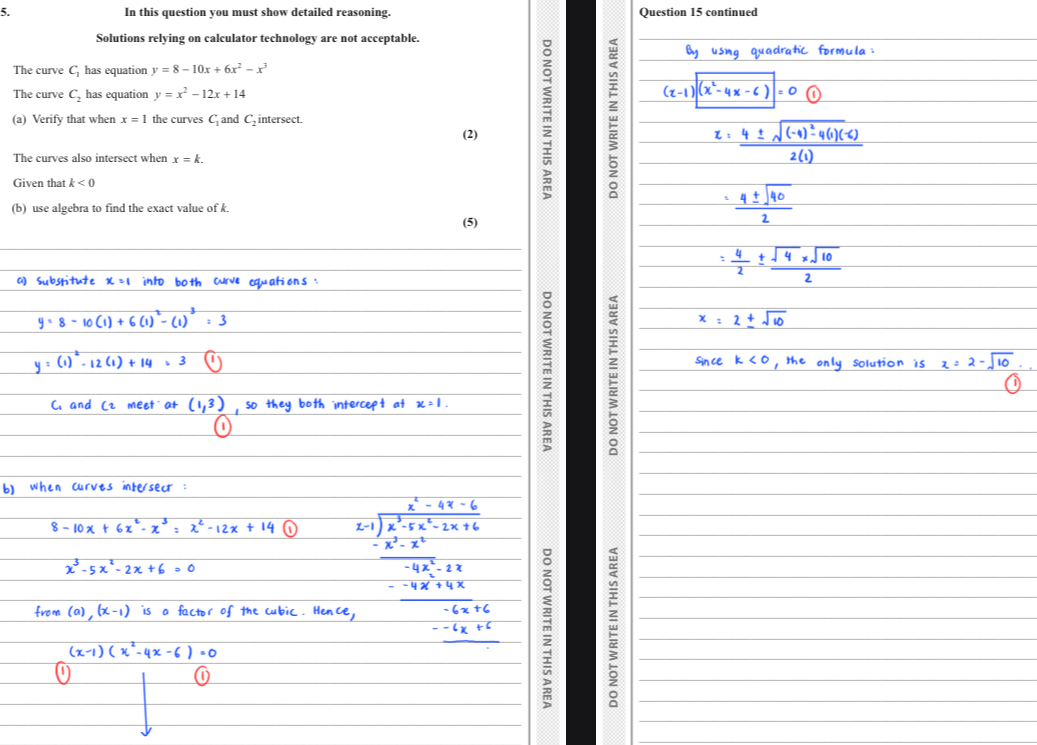 5.
In this question you must show detailed reasoning.
Solutions relying on calculator technology are not acceptable.
The curve C₁ has equation y = 8 − 10x + 6x² − x³
The curve C₂ has equation y = x² − 12x + 14
(a) Verify that when x = 1 the curves C₁ and C₂ intersect.
(2)
The curves also intersect when x = k.
Given that k < 0
(b) use algebra to find the exact value of k.
(5)
a) Substitute x=1 into both curve equations :
y = 8 - 10(1) + 6(1)² - (1)³ = 3
y = (1)² - 12(1) + 14 = 3 ①
C₁ and C2 meet at (1,3), so they both intercept at x=1.
①
b) When curves intersect :
8 - 10x + 6x² - x³ = x² - 12x + 14 ①
x³ - 5x² - 2x + 6 = 0
from (a), (x-1) is a factor of the cubic. Hence,
(x-1)(x² - 4x - 6) = 0
① ①
x² - 4x - 6
x-1) x³ - 5x² - 2x + 6
- x³ - x²
-4x² - 2x
- -4x² + 4x
-6x + 6
- -6x + 6
DO NOT WRITE IN THIS AREA
DO NOT WRITE IN THIS AREA
DO NOT WRITE IN THIS AREA
DO NOT WRITE IN THIS AREA
DO NOT WRITE IN THIS AREA
DO NOT WRITE IN THIS AREA
Question 15 continued
By using quadratic formula :
(x-1)(x² - 4x - 6) = 0 ①
x = 4 ± √(-4)² - 4(1)(-6)
2(1)
= 4 ± √40
2
= 4/2 ± √4 × √10
2
x = 2 ± √10
Since k < 0, the only solution is x = 2 - √10 .
①